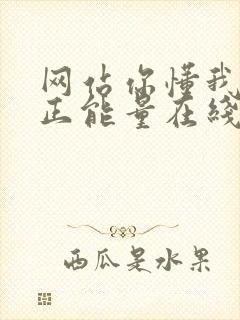 网站你懂我
正能量在线
西瓜是水果